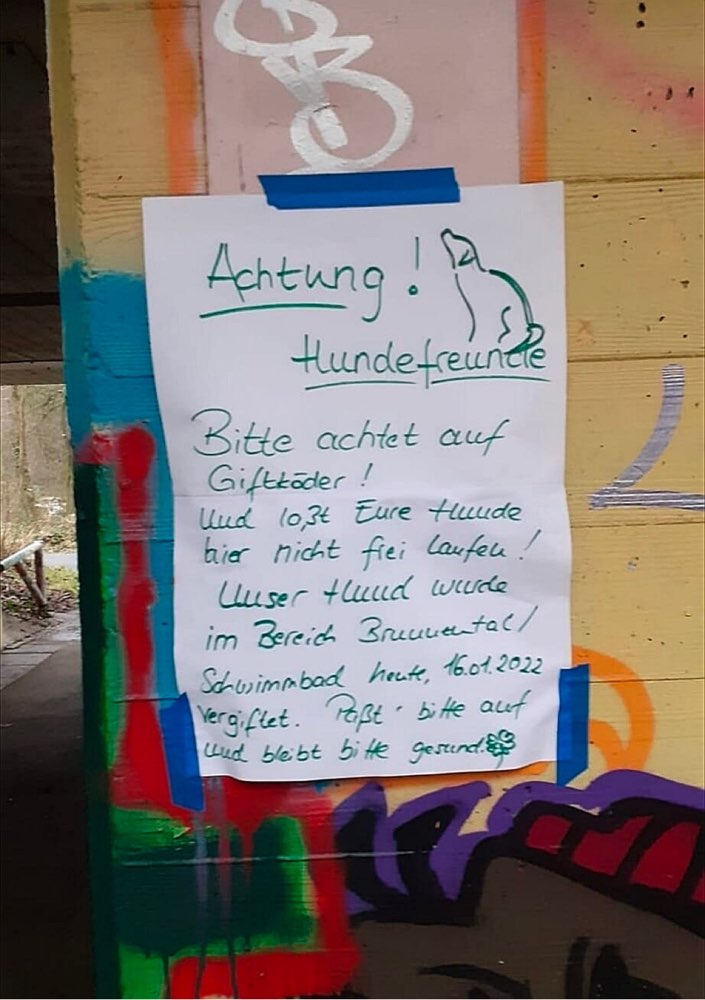 Achtung !
Hundefreunde
Bitte achtet auf
Giftköder !
Und laßt Eure Hunde
hier nicht frei laufen !
Unser Hund wurde
im Bereich Brunnental/
Schwimmbad heute, 16.01.2022
vergiftet. Paßt bitte auf
und bleibt bitte gesund.